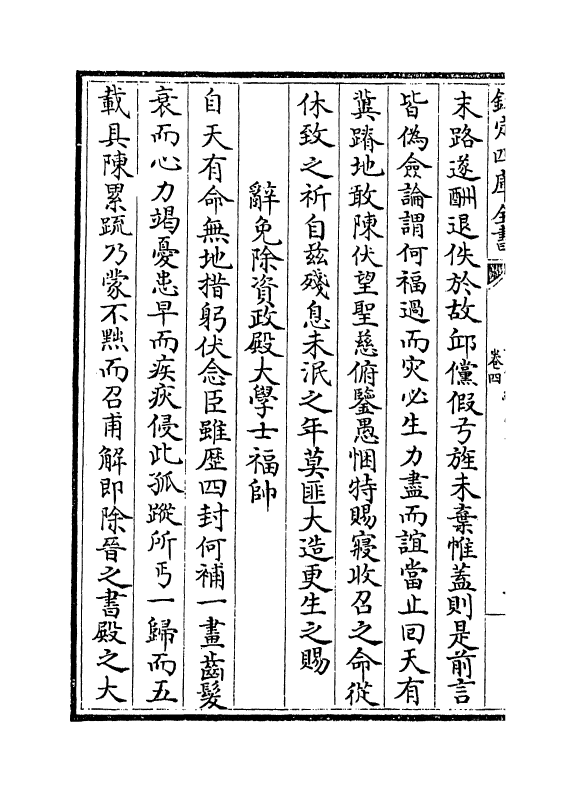 欽定四庫全書
卷四
末路遂酬退佚於故邱儻假弓旌未棄帷蓋則是前言
皆偽僉論謂何福過而灾必生力盡而誼當止回天有
冀蹐地敢陳伏望聖慈俯鑒愚悃特賜寢收召之命從
休致之祈自兹殘息未泯之年莫匪大造更生之賜
辭免除資政殿大學士福帥
自天有命無地措躬伏念臣雖歴四封何補一畫齒髮
衰而心力竭憂患早而疾疢侵此孤蹤所丐一歸而五
載具陳累疏乃蒙不黜而召甫解即除晉之書殿之大